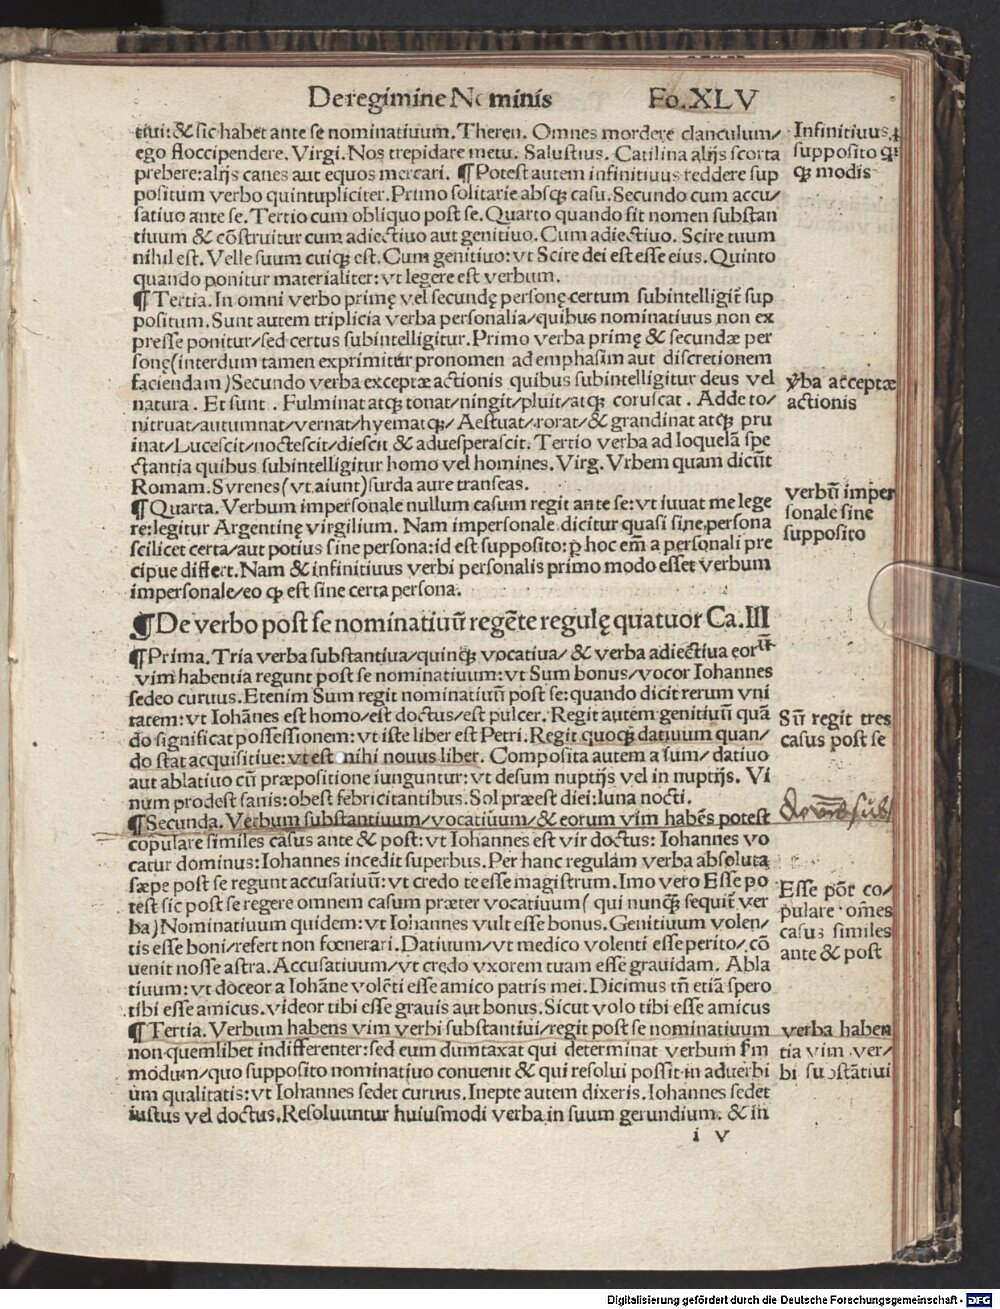 De regimine Nominis Fo. XLV
tiui: & sic habet ante se nominatiuum. Theren. Omnes mordere clanculum/
ego floccipendere. Virgi. Nos trepidare metu. Salustius. Catilina alijs scorta
prebere: alijs canes aut equos mercari. ¶ Potest autem infinitiuus reddere sup
positum verbo quintupliciter. Primo solitarie absqꝫ casu. Secundo cum accu/
satiuo ante se. Tertio cum obliquo post se. Quarto quando fit nomen substan
tiuum & cōstruitur cum adiectiuo aut genitiuo. Cum adiectiuo. Scire tuum
nihil est. Velle suum cuiqꝫ est. Cum genitiuo: vt Scire dei est esse eius. Quinto
quando ponitur materialiter: vt legere est verbum.
Infinitiuus
supposito
modis
¶ Tertia. In omni verbo primę vel secundę personę certum subintelligit᷑ sup
positum. Sunt autem triplicia verba personalia/quibus nominatiuus non ex
presse ponitur/sed certus subintelligitur. Primo verba primę & secundæ per
sonę(interdum tamen exprimitur pronomen ad emphasim aut discretionem
faciendam) Secundo verba exceptæ actionis quibus subintelligitur deus vel
natura. Et sunt. Fulminat atqꝫ tonat/ningit/pluit/atqꝫ coruscat. Adde to/
nitruat/autumnat/vernat/hyematqꝫ/ Aestuat/rorat/& grandinat atqꝫ pru
inat/Lucescit/noctescit/diescit & aduesperascit. Tertio verba ad loquelā spe
ctantia quibus subintelligitur homo vel homines. Virg. Vrbem quam dicūt
Romam. Syrenes (vt aiunt) surda aure transeas.
v̓ba acceptæ
actionis
¶ Quarta. Verbum impersonale nullum casum regit ante se: vt iuuat me lege
re: legitur Argentinę virgilium. Nam impersonale dicitur quasi sine persona
scilicet certa/aut potius sine persona: id est supposito: ꝑ hoc em̄ a personali pre
cipue differt. Nam & infinitiuus verbi personalis primo modo esset verbum
impersonale/eo ꝙ est sine certa persona.
verbū imper
sonale sine
supposito
¶ De verbo post se nominatiuū regēte regulę quatuor Ca. III
¶ Prima. Tria verba substantiua/quinqꝫ vocatiua/ & verba adiectiua eorū
vim habentia regunt post se nominatiuum: vt Sum bonus/vocor Iohannes
sedeo curuus. Etenim Sum regit nominatiuū post se: quando dicit rerum vni
tatem: vt Iohānes est homo/est doctus/est pulcer. Regit autem genitiuū quā
do significat possessionem: vt iste liber est Petri. Regit quoqꝫ datiuum quan/
do stat acquisitiue: vt est mihi nouus liber. Composita autem a sum/ datiuo
aut ablatiuo cū præpositione iunguntur: vt desum nuptijs vel in nuptijs. Vi
num prodest sanis: obest febricitantibus. Sol præest diei: luna nocti.
Sū regit tres
casus post se
¶ Secunda. Verbum substantiuum/vocatiuum/& eorum vim habēs potest
copulare similes casus ante & post: vt Iohannes est vir doctus: Iohannes vo
catur dominus: Iohannes incedit superbus. Per hanc regulam verba absoluta
sæpe post se regunt accusatiuū: vt credo te esse magistrum. Imo vero Esse po
test sic post se regere omnem casum præter vocatiuum( qui nunqꝫ sequit᷑ ver
ba) Nominatiuum quidem: vt Iohannes vult esse bonus. Genitiuum volen/
tis esse boni/refert non fœnerari. Datiuum/vt medico volenti esse perito/ cō
uenit nosse astra. Accusatiuum/vt credo vxorem tuam esse grauidam. Abla
tiuum: vt doceor a Iohāne volēti esse amico patris mei. Dicimus tn̄ etiā spero
tibi esse amicus. videor tibi esse grauis aut bonus. Sicut volo tibi esse amicus
Esse pōt co/
pulare om̄es
casus similes
ante & post
¶ Tertia. Verbum habens vim verbi substantiui/regit post se nominatiuum
non quemlibet indifferenter: sed eum dumtaxat qui determinat verbum fm
modum/quo supposito nominatiuo conuenit & qui resolui possit in aduerbi
um qualitatis: vt Iohannes sedet curuus. Inepte autem dixeris. Iohannes sedet
iustus vel doctus. Resoluuntur huiusmodi verba in suum gerundium. & in
verba haben
tia vim ver/
bi substātiui
i v
Digitalisierung gefördert durch die Deutsche Forschungsgemeinschaft - DFG